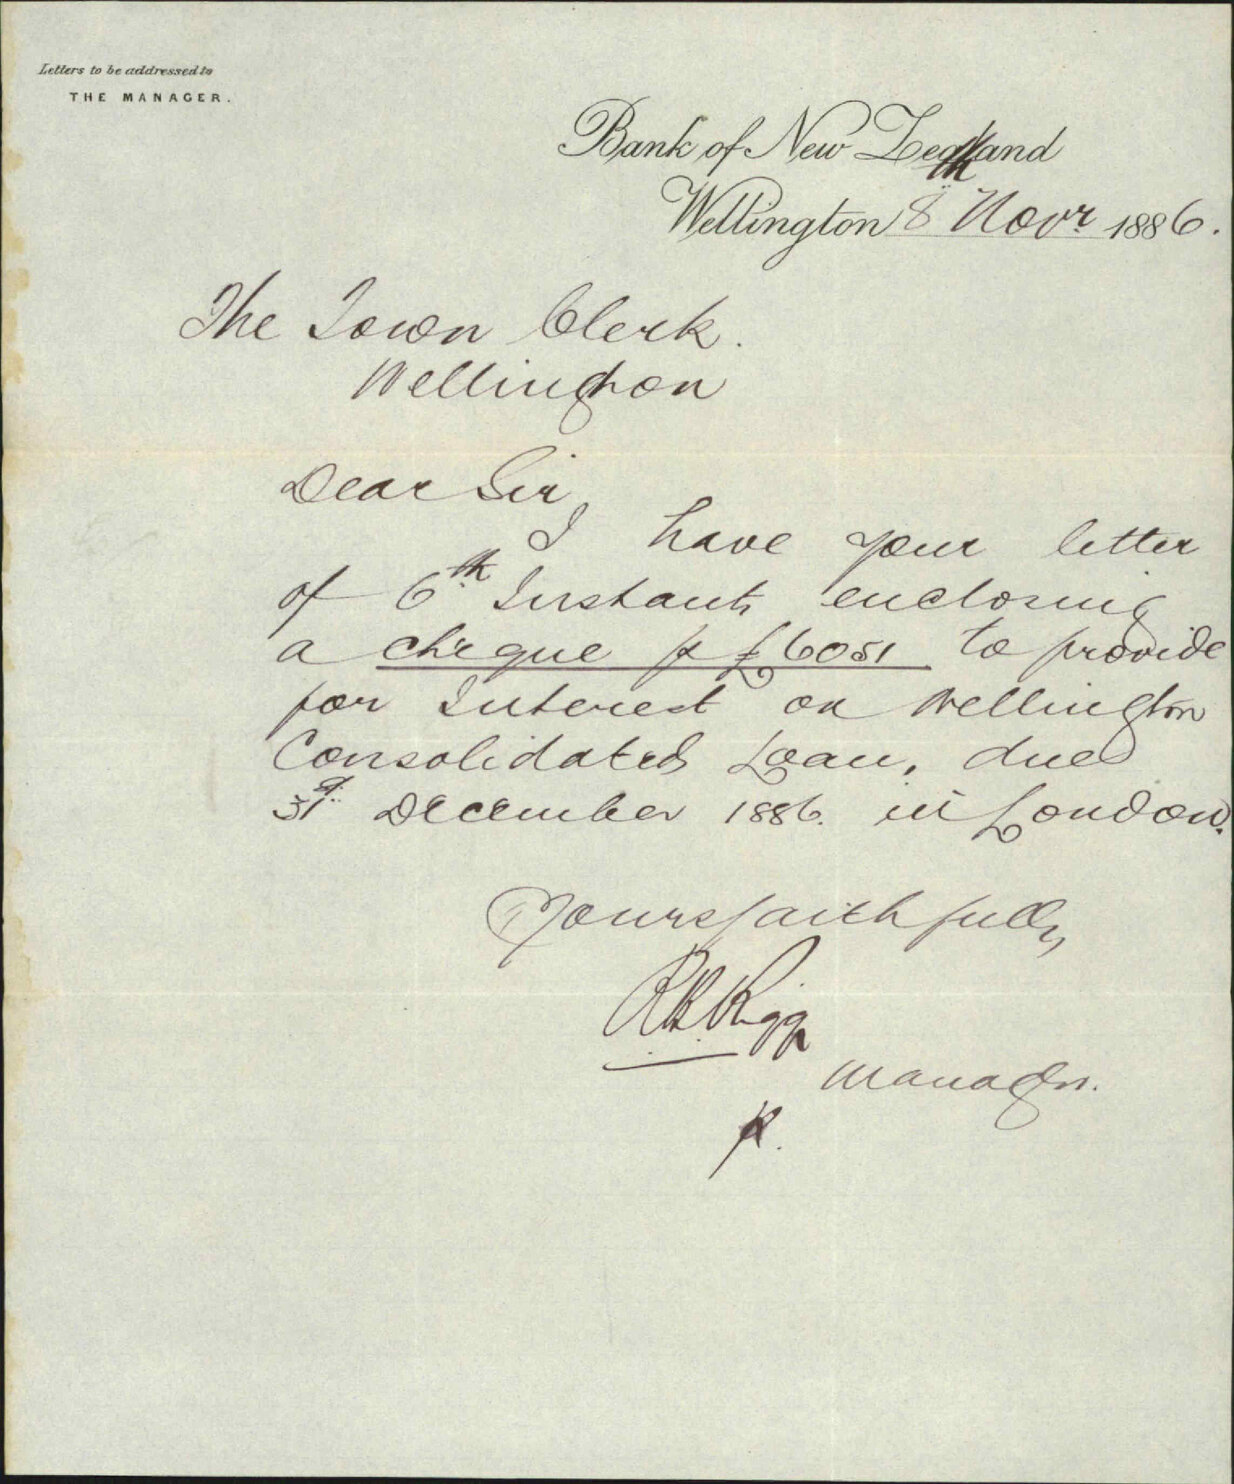 Letters to be addressed to
THE MANAGER.
Bank of New Zealand
Wellington 8th Novr 1886.
The Town Clerk.
Wellington
Dear Sir,
I have your letter
of 6th Instant, enclosing
a cheque for £6051 to provide
for Interest on Wellington
Consolidated Loan, due
31st December 1886. in London.
Yours faithfully,
Rigg
Manager.